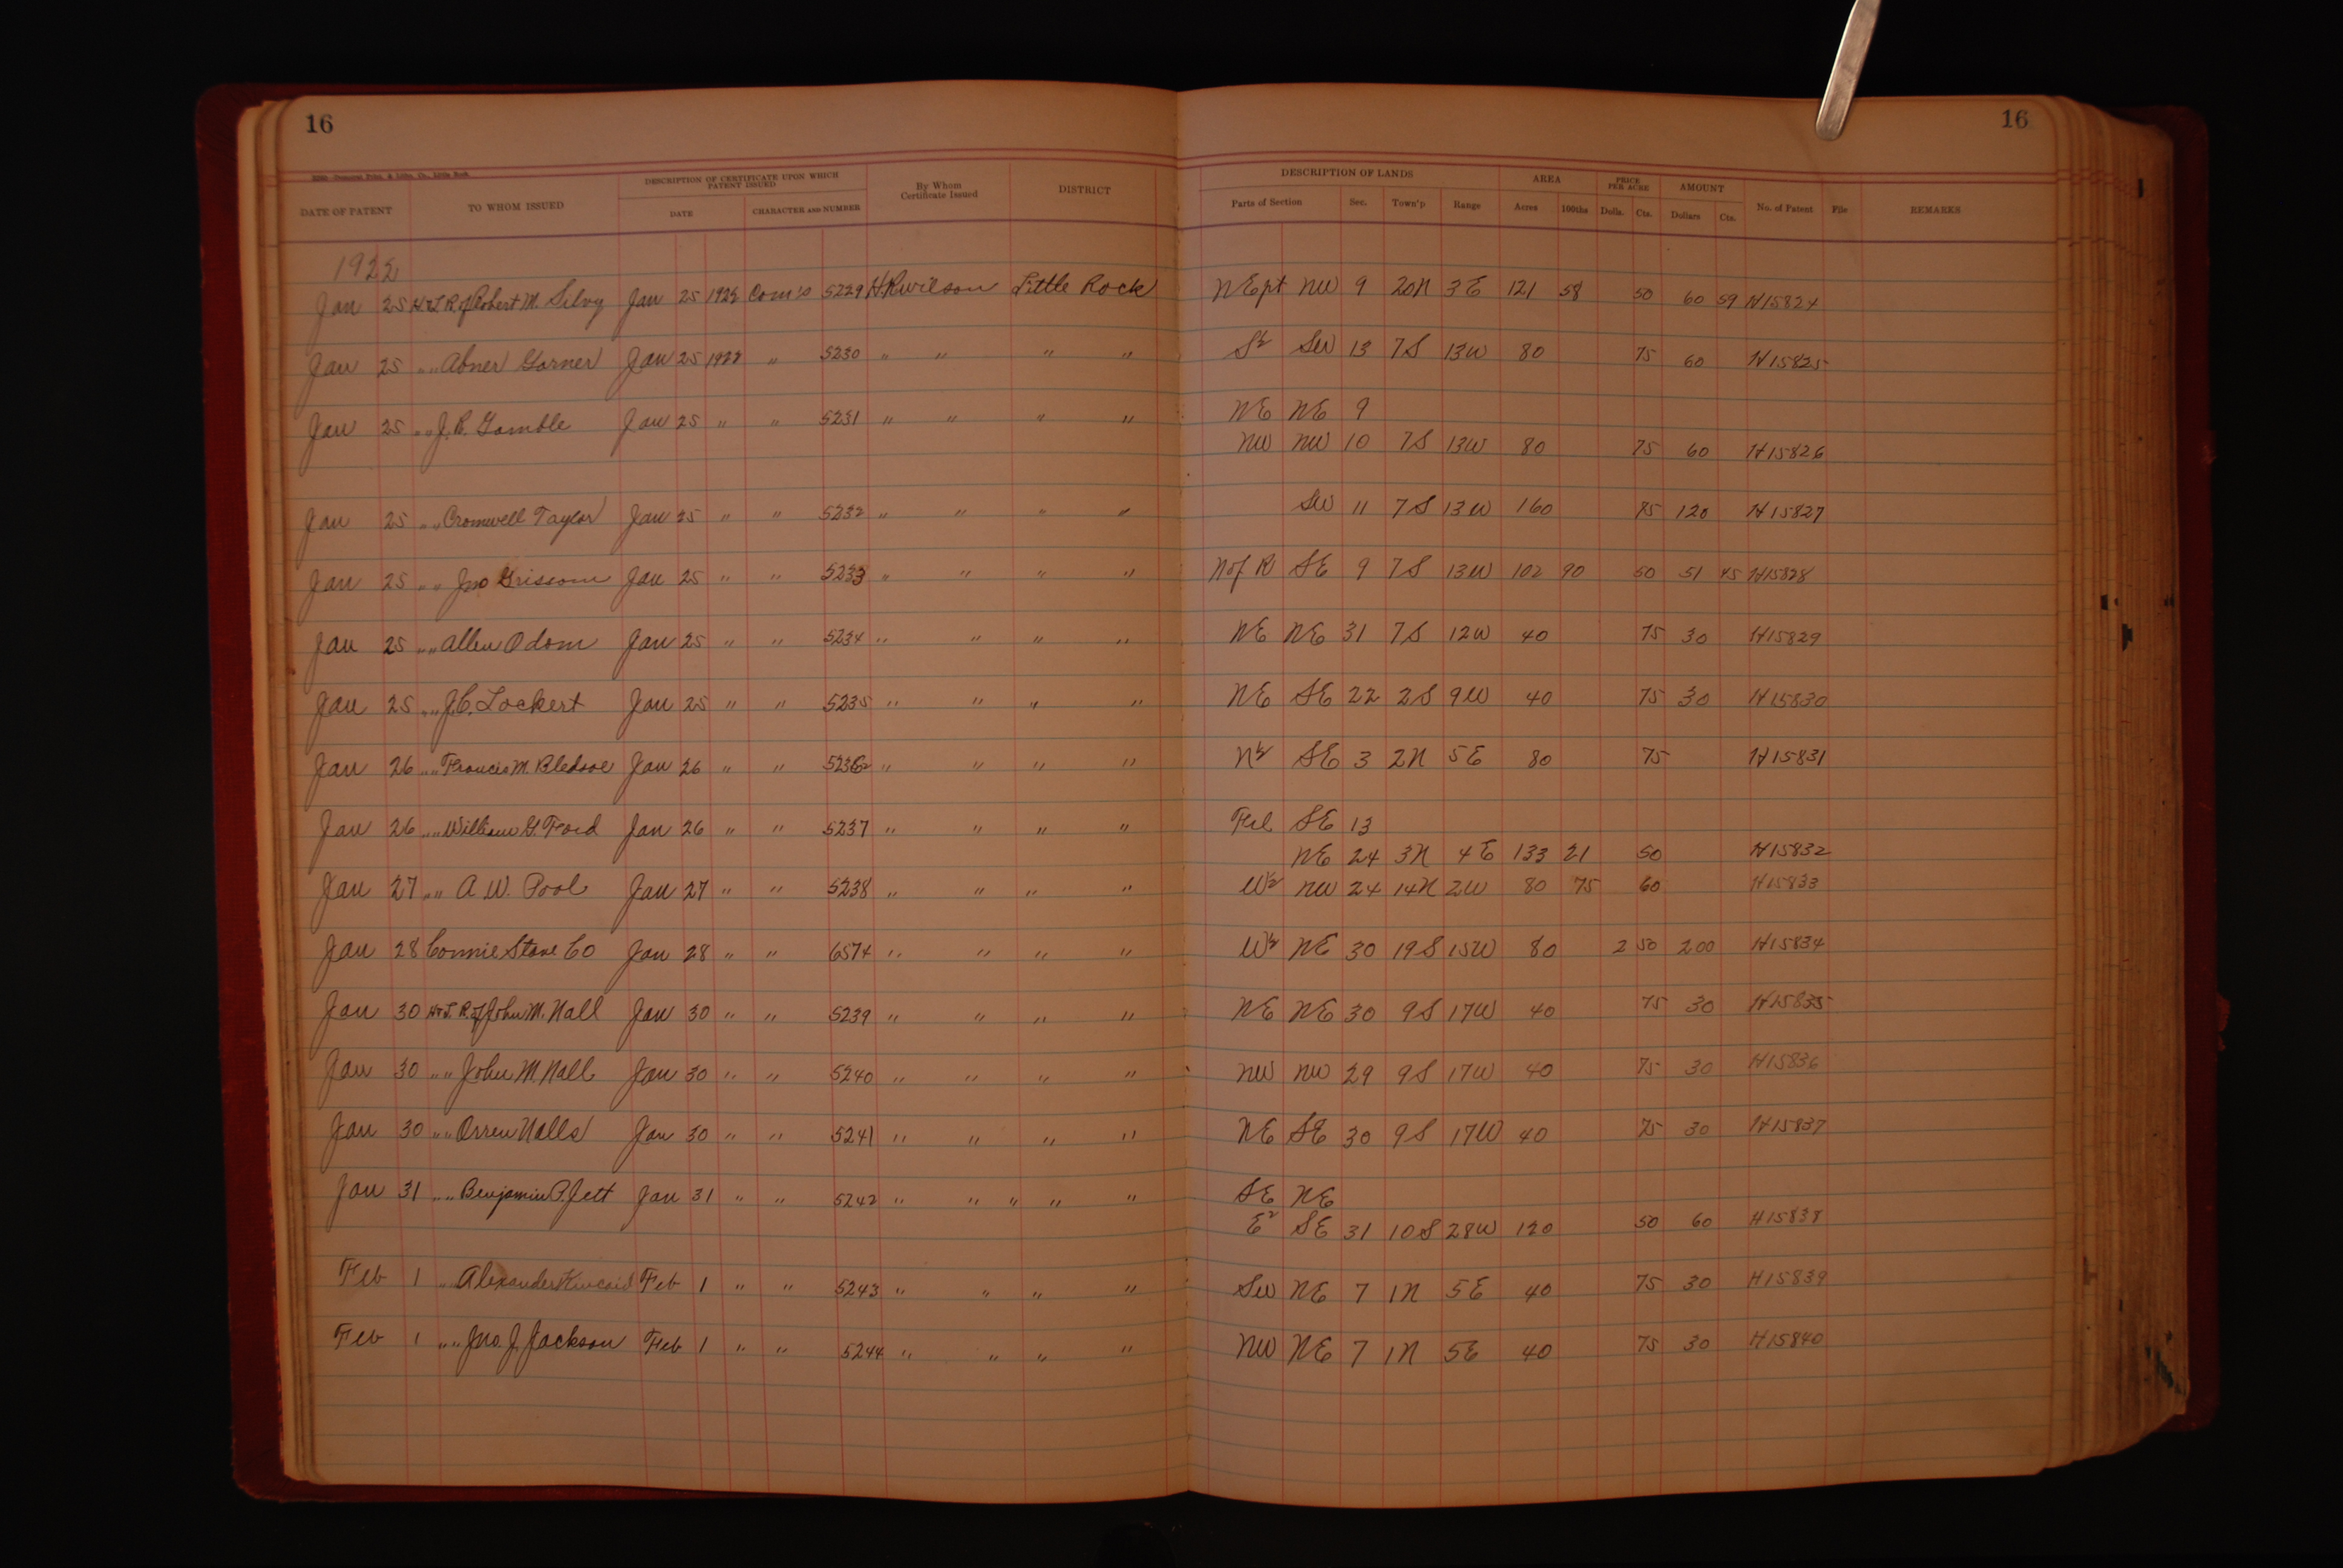 16
16
DESCRIPTION OF CERTIFICATE UPON WHICH PATENT ISSUED
DATE OF PATENT TO WHOM ISSUED DATE CHARACTER AND NUMBER By Whom Certificate Issued DISTRICT
DESCRIPTION OF LANDS AREA PRICE PER ACRE AMOUNT
Parts of Section Sec. Town'p Range Acres 100ths Dolls. Cts. Dollars Cts. No. of Patent File REMARKS
1922
Jan 25 H & L R. of Robert M. Silvy Jan 25 1922 Com's 5229 H R Wilson Little Rock NE pt NW 9 20N 3E 121 58 50 60 59 H15824
Jan 25 " " Abner Garner Jan 25 1922 " 5230 " " " " S½ SW 13 7S 13W 80 75 60 H15825
Jan 25 " " J. R. Gamble Jan 25 " " 5231 " " " " NE NE 9
NW NW 10 7S 13W 80 75 60 H15826
Jan 25 " " Cromwell Taylor Jan 25 " " 5232 " " " " SW 11 7S 13W 160 75 120 H15827
Jan 25 " " Jno Grissom Jan 25 " " 5233 " " " " N of R SE 9 7S 13W 102 90 50 51 45 H15828
Jan 25 " " Allen Odom Jan 25 " " 5234 " " " " NE NE 31 7S 12W 40 75 30 H15829
Jan 25 " " J. C. Lockert Jan 25 " " 5235 " " " " NE SE 22 2S 9W 40 75 30 H15830
Jan 26 " " Francis M. Bledsoe Jan 26 " " 5236 " " " " N½ SE 3 2N 5E 80 75 H15831
Jan 26 " " William G. Ford Jan 26 " " 5237 " " " " Frl SE 13
NE 24 3N 4E 133 21 50 H15832
Jan 27 " " A. W. Pool Jan 27 " " 5238 " " " " W½ NW 24 14N 2W 80 75 60 H15833
Jan 28 Connie Stave Co Jan 28 " " 6574 " " " " W½ NE 30 19S 15W 80 2 50 200 H15834
Jan 30 H & L R. of John M. Nall Jan 30 " " 5239 " " " " NE NE 30 9S 17W 40 75 30 H15835
Jan 30 " " John M. Nall Jan 30 " " 5240 " " " " NW NW 29 9S 17W 40 75 30 H15836
Jan 30 " " Orren Nalls Jan 30 " " 5241 " " " " NE SE 30 9S 17W 40 75 30 H15837
Jan 31 " " Benjamin P. Jett Jan 31 " " 5242 " " " " " SE NE
E2 SE 31 10S 28W 120 50 60 H15838
Feb 1 " " Alexander Kincaid Feb 1 " " 5243 " " " " SW NE 7 1N 5E 40 75 30 H15839
Feb 1 " " Jno. J. Jackson Feb 1 " " 5244 " " " " NW NE 7 1N 5E 40 75 30 H15840